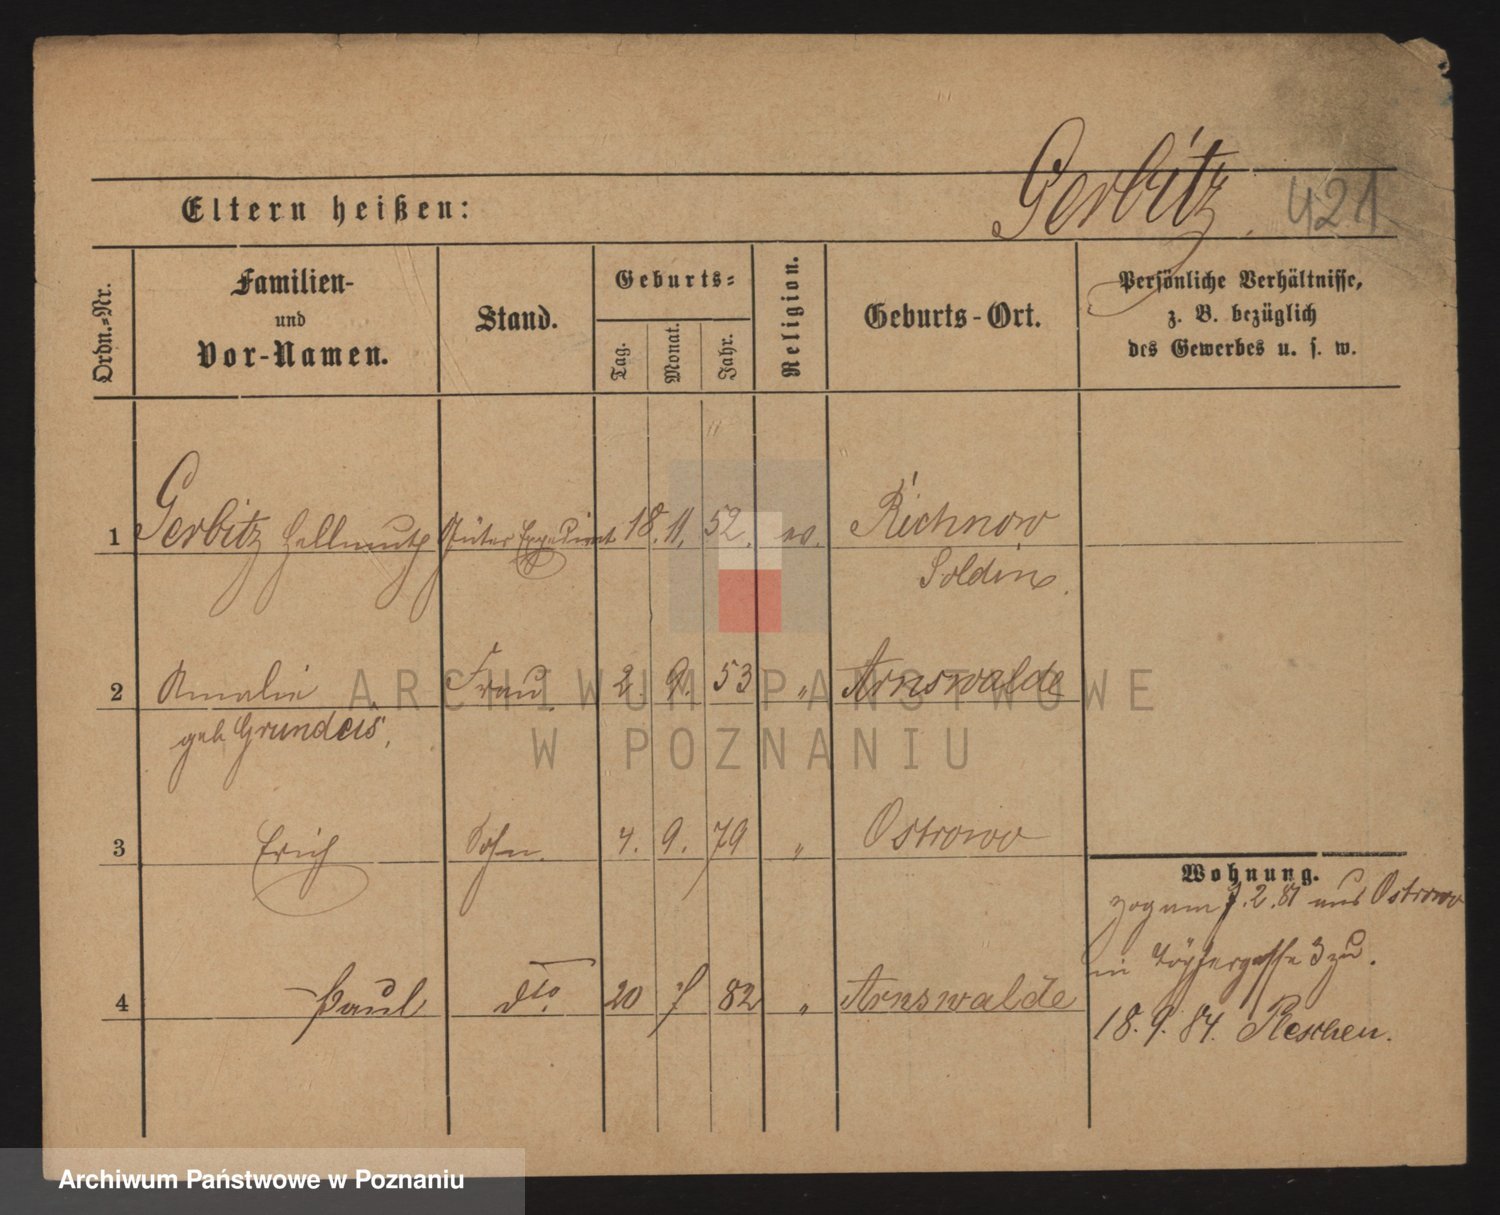 Gerbitz. 421
Eltern heißen:
Ordn.=Nr.
Familien-
und
Vor-Namen.
Stand.
Geburts=
Tag.
Monat.
Jahr.
Religion.
Geburts-Ort.
Persönliche Verhältnisse,
z. B. bezüglich
des Gewerbes u. s. w.
1 Gerbitz Hellmuth Güter Expedient 18. 11. 52. ev. Richnow
Soldin.
2 Amalie Frau 2. 9. 53 " Arnswalde
geb Grundeis,
3 Erich Sohn. 4. 9. 79 " Ostrowo
Wohnung.
zog am 7.2.81 aus Ostrowo
in Töpfergasse 3 zu.
4 Paul dto. 20 7 82 " Arnswalde
18. 9. 84.
ARCHIWUM PAŃSTWOWE
W POZNANIU
Archiwum Państwowe w Poznaniu